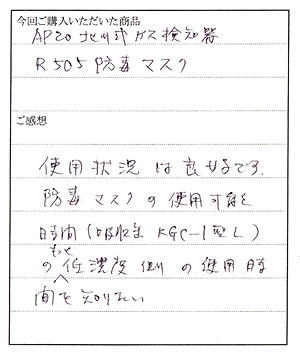 今回ご購入いただいた商品
AP20 北川式ガス検知器
R505 防毒マスク
ご感想
使用状況は良好です。
防毒マスクの使用可能な
時間(吸収缶 KGC-1型L)
の低濃度側の使用時
もっと
間を知りたい